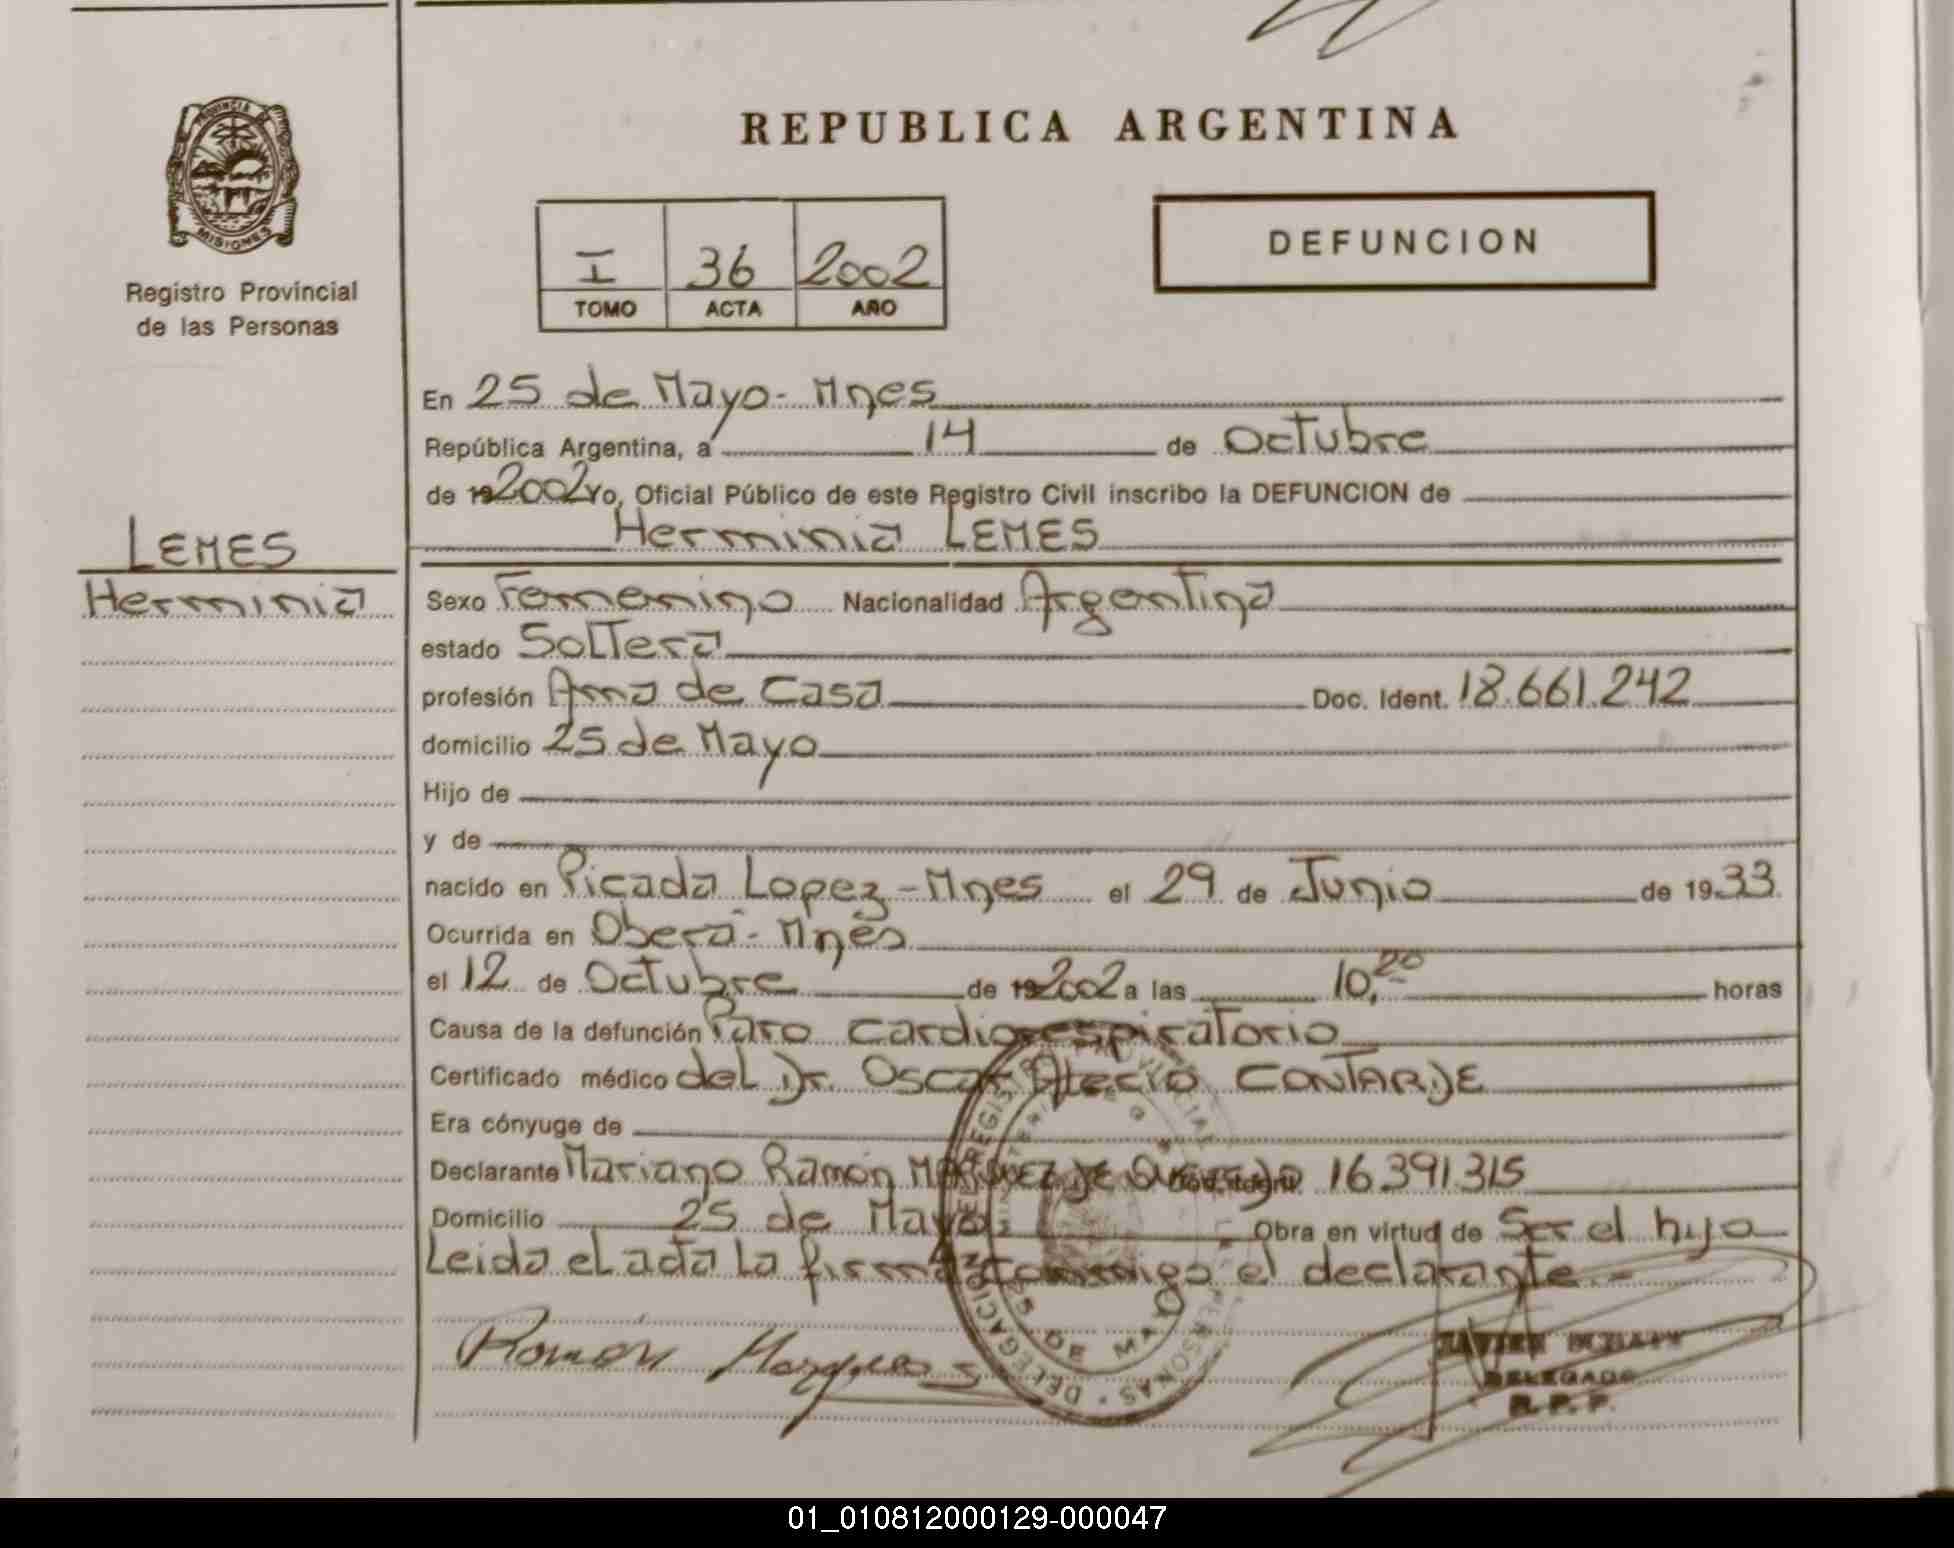 REPUBLICA ARGENTINA
PROVINCIA
MISIONES
Registro Provincial
de las Personas
I 36 2002
TOMO ACTA AÑO
DEFUNCION
En 25 de Mayo- Mnes
República Argentina, a 14 de Octubre
de 19 2002 Yo, Oficial Público de este Registro Civil inscribo la DEFUNCION de
Herminia LEMES
LEMES
Herminia
Sexo Femenino Nacionalidad Argentina
estado Soltera
profesión Ama de Casa Doc. Ident. 18.661.242
domicilio 25 de Mayo
Hijo de
y de
nacido en Picada Lopez - Mnes el 29 de Junio de 1933.
Ocurrida en Oberá - Mnes
el 12 de Octubre de 19 2002 a las 10,20 horas
Causa de la defunción Paro cardiorespiratorio
Certificado médico del Dr. Oscar CONTARDE
Era cónyuge de
Declarante Mariano Ramón 16.391.315
Domicilio 25 de Mayo Obra en virtud de Ser el hijo
Leida el acta la firma conmigo el declarante.-
Ramón Marques
DELEGACION 25 DE MAYO
DELEGADO
R. P. P.
01_010812000129-000047